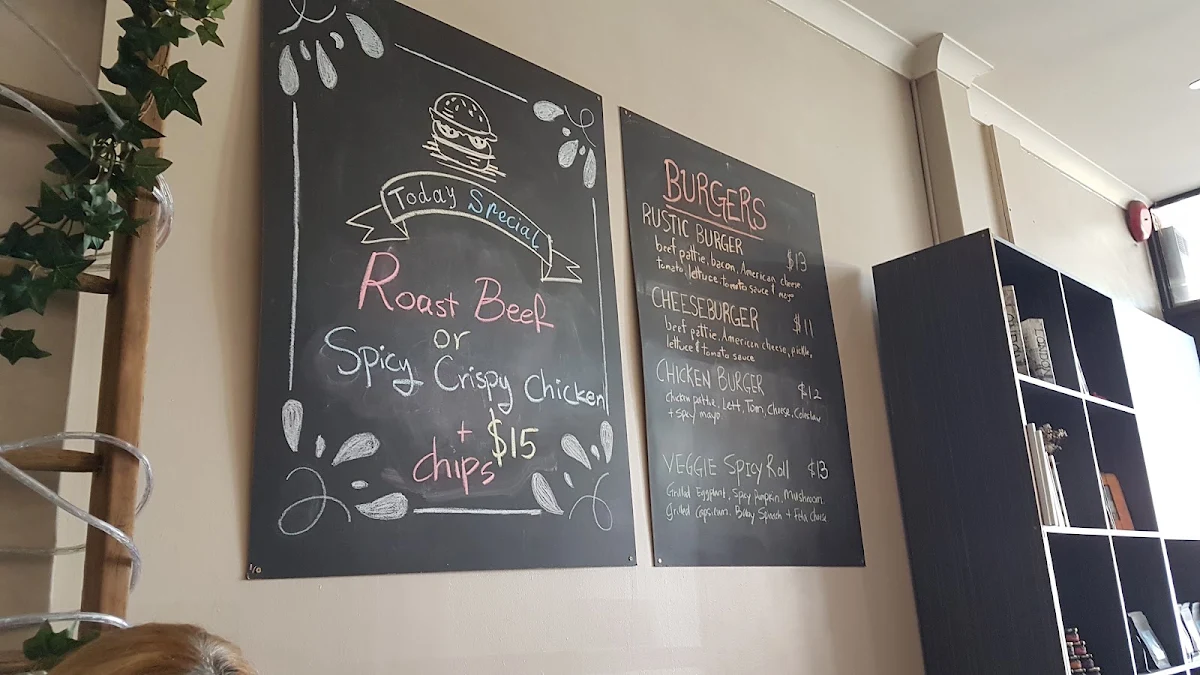 Today Special
Roast Beef
or
Spicy Crispy Chicken
+
chips $15
BURGERS
RUSTIC BURGER $13
beef pattie, bacon, American cheese,
tomato, lettuce, tomato sauce & mayo
CHEESEBURGER $11
beef pattie, American cheese, pickle,
lettuce & tomato sauce
CHICKEN BURGER $12
chicken pattie, Lett, Tom, Cheese, Coleslaw
+ spicy mayo
VEGGIE Spicy Roll $13
Grilled Eggplant, Spicy pumpkin, Mushroom
Grilled Capsicum, Baby Spinach + Feta Cheese
LONDON